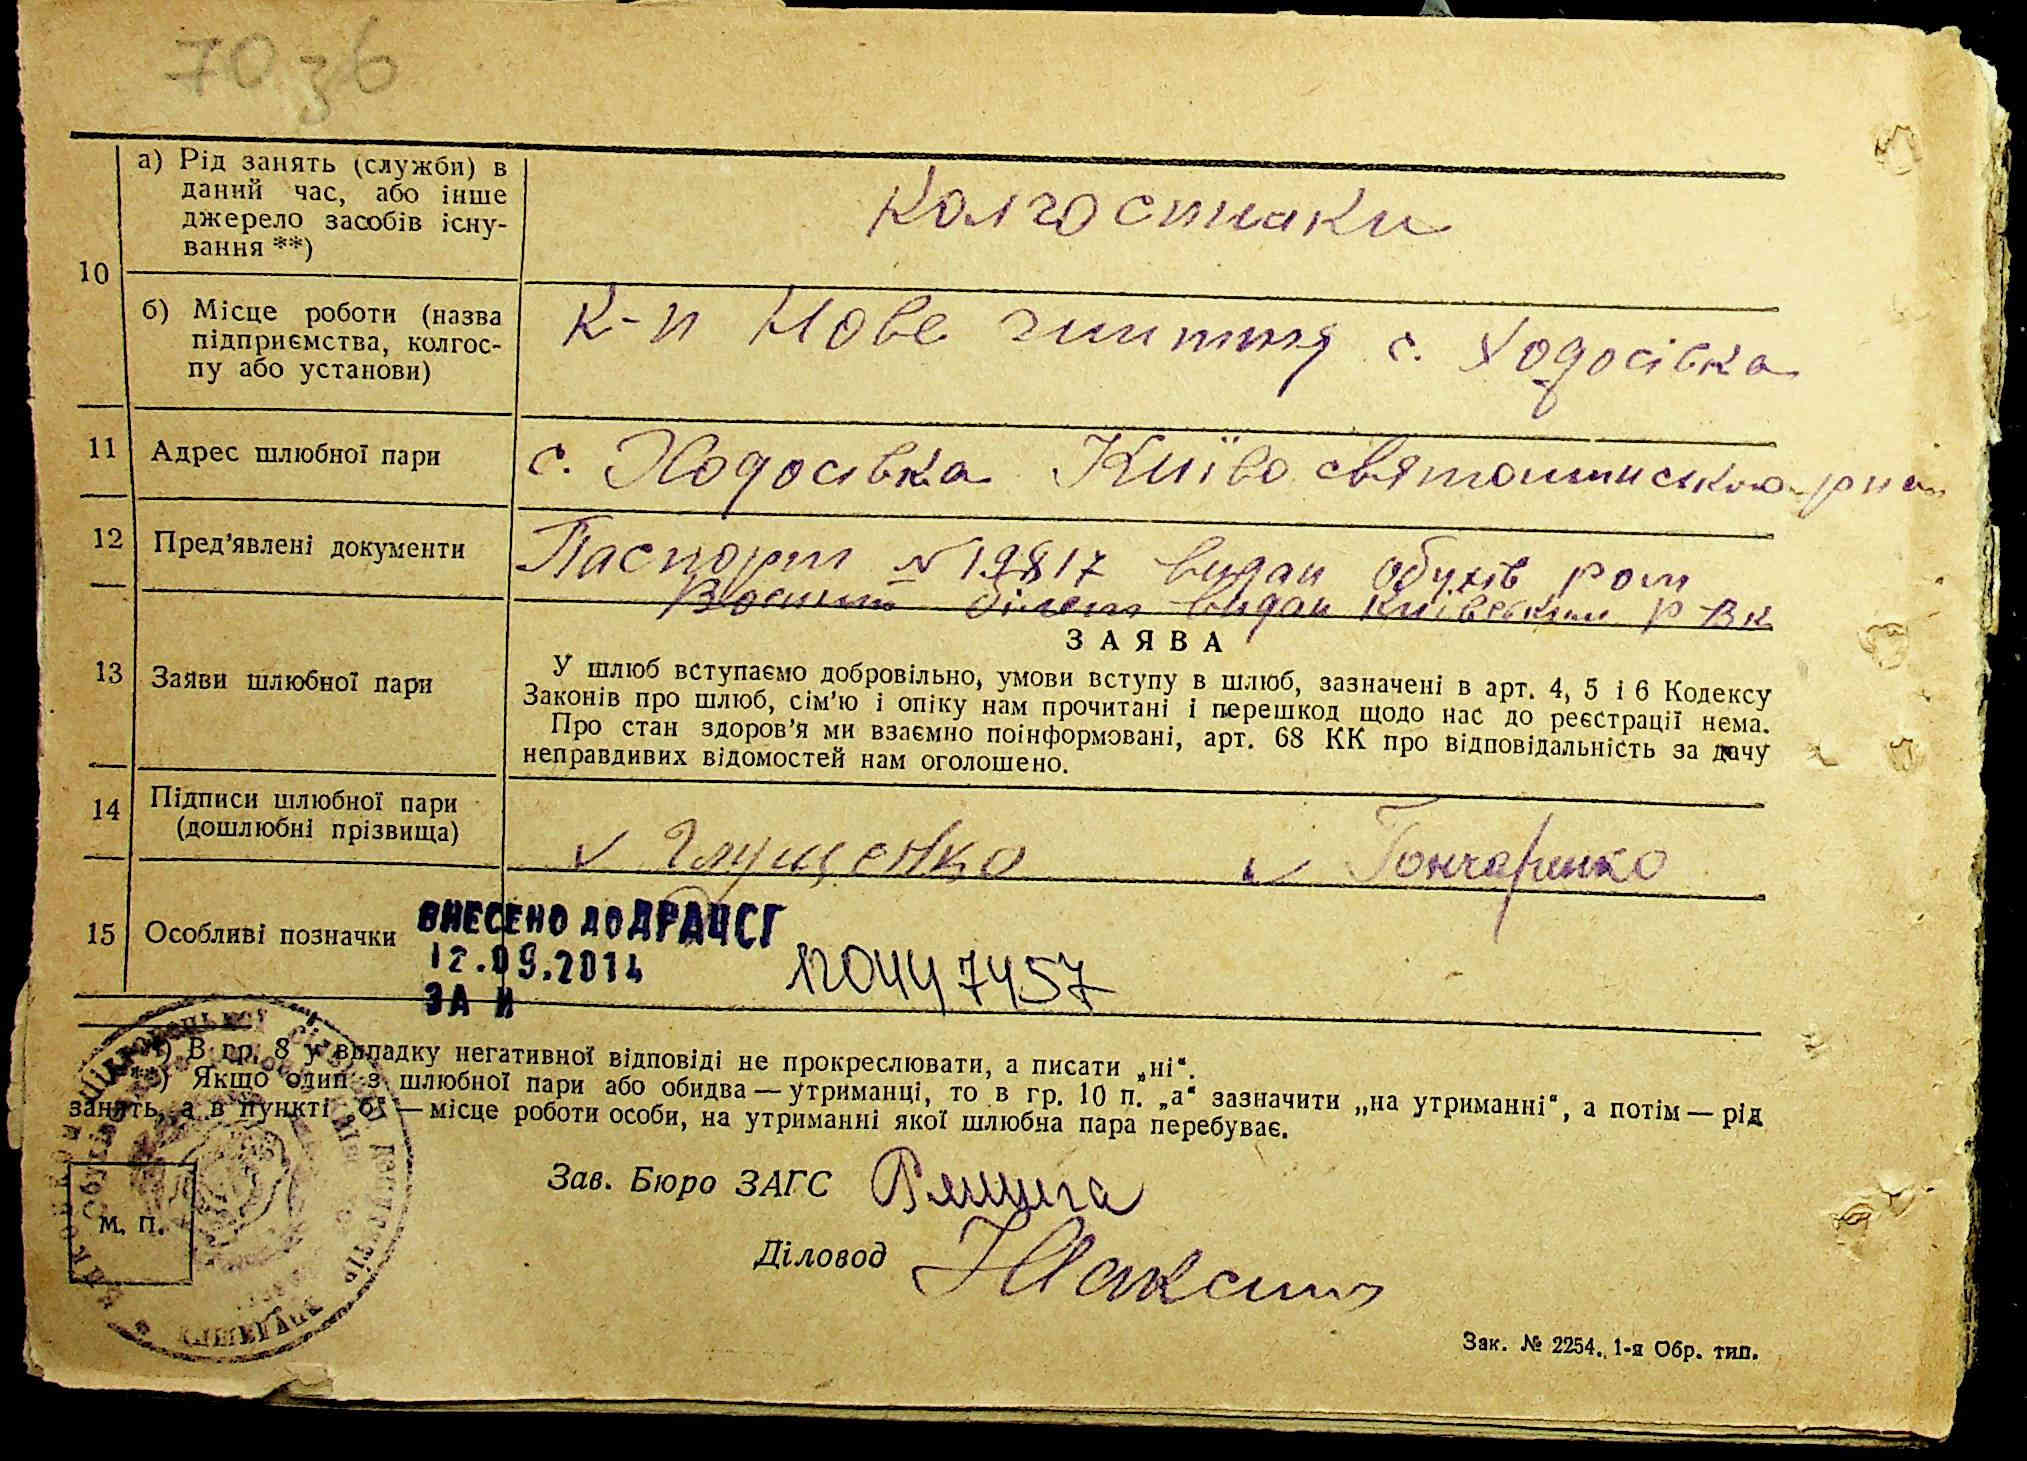 70 36
10
а) Рід занять (служби) в
даний час, або інше
джерело засобів існу-
вання **)
Колгоспники
б) Місце роботи (назва
підприємства, колгос-
пу або установи)
к-п Нове життя с. Ходосівка
11 Адрес шлюбної пари
с. Ходосівка Київо святошинського р-на
12 Пред’явлені документи
Паспорт № 19817 видан Обухів ром
Воєнний білет видан Київським РВК
13 Заяви шлюбної пари
ЗАЯВА
У шлюб вступаємо добровільно, умови вступу в шлюб, зазначені в арт. 4, 5 і 6 Кодексу
Законів про шлюб, сім’ю і опіку нам прочитані і перешкод щодо нас до реєстрації нема.
Про стан здоров’я ми взаємно поінформовані, арт. 68 КК про відповідальність за дачу
неправдивих відомостей нам оголошено.
14 Підписи шлюбної пари
(дошлюбні прізвища)
Глущенко Гончаренко
15 Особливі позначки
ВНЕСЕНО ДО ДРАЦСГ
12.09.2014
ЗА И
1204447457
*) В гр. 8 у випадку негативної відповіді не прокреслювати, а писати „ні“.
**) Якщо один з шлюбної пари або обидва — утриманці, то в гр. 10 п. „а“ зазначити „на утриманні“, а потім — рід
занять, а в пункті „б“ — місце роботи особи, на утриманні якої шлюбна пара перебуває.
Зав. Бюро ЗАГС
М. П.
Діловод
Зак. № 2254. 1-я Обр. тип.